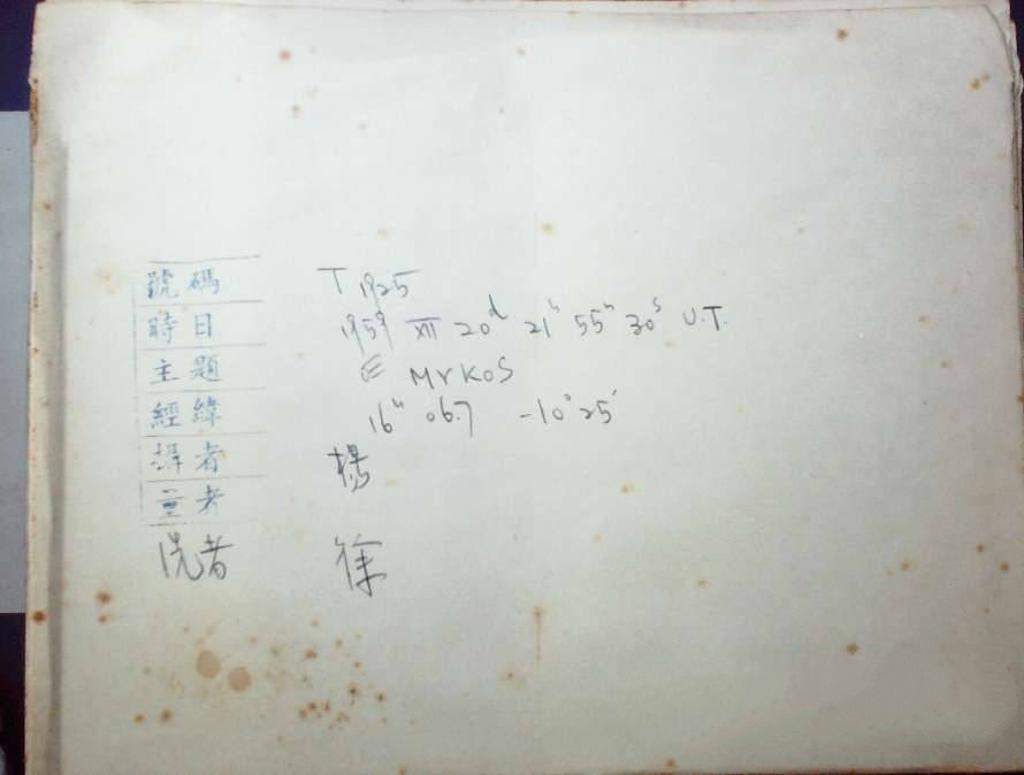 號碼 T 1925
時日 1959 XII 20d 21h 55m 30s U.T.
主題 MrKOS
經緯 16h 06.7 -10°25′
攝者 楊
量者
洗者 徐